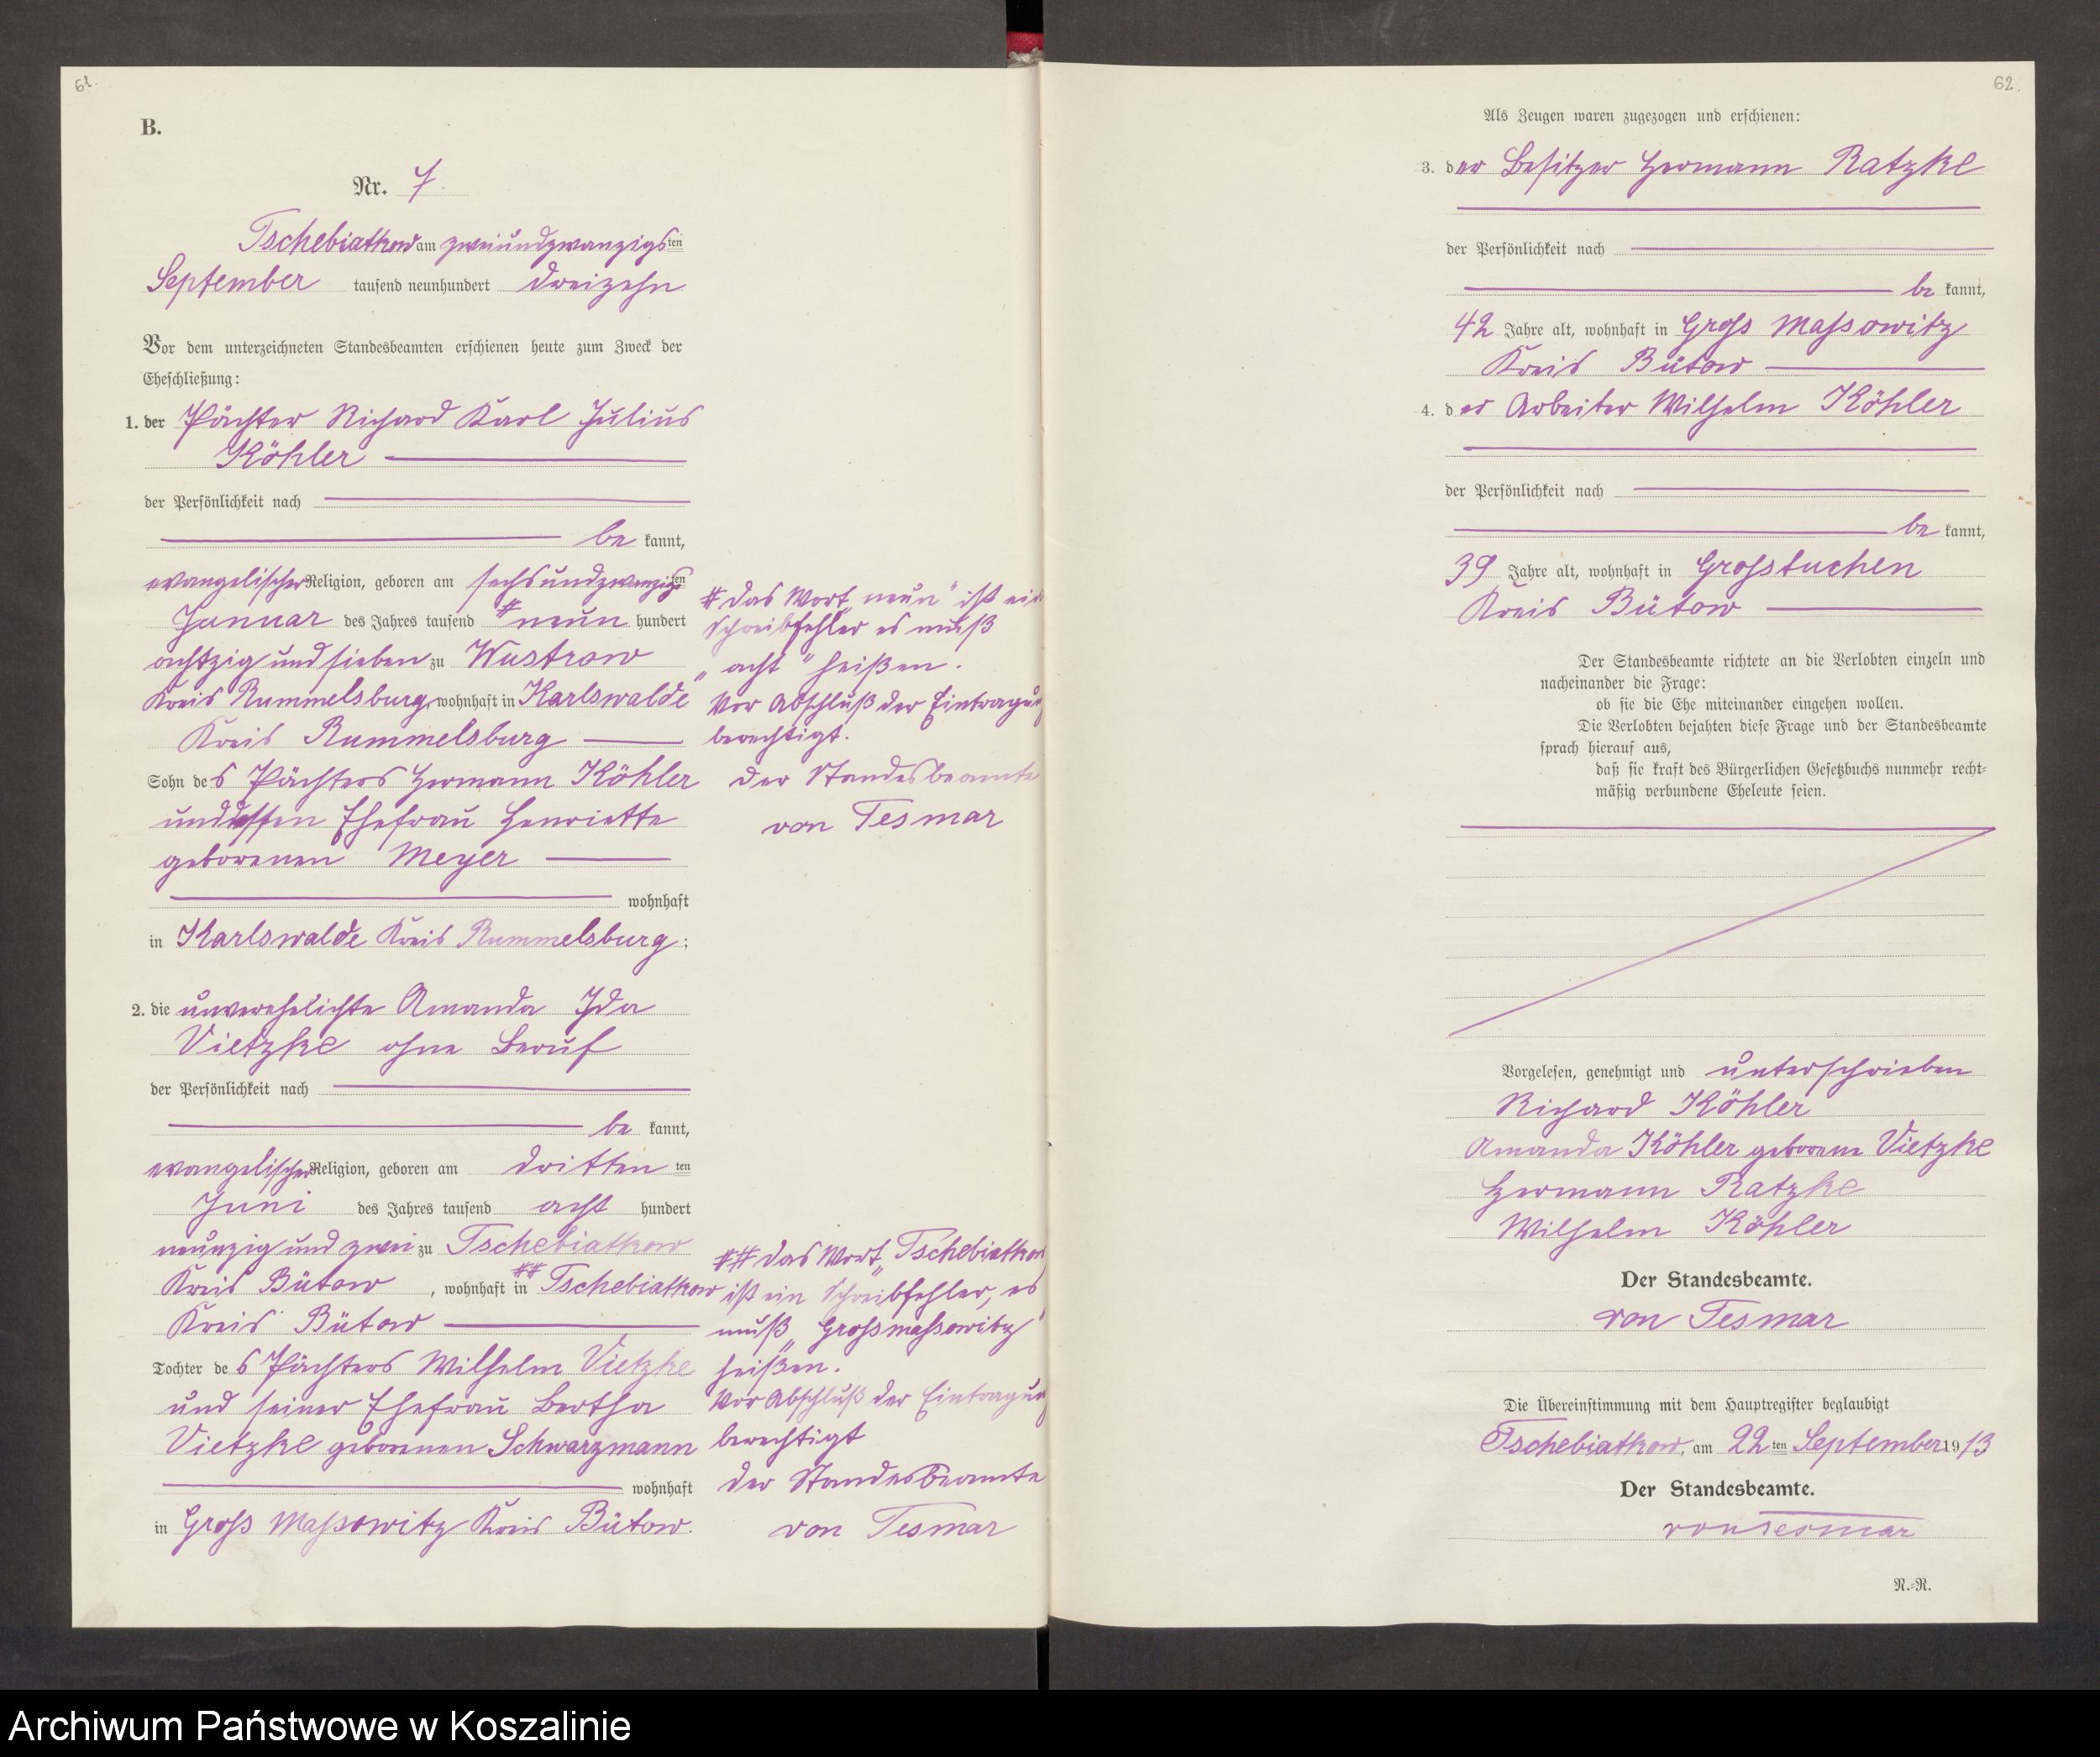 61.
B.
Nr. 7.
Tschebiatkow am zweiundzwanzigsten
September tausend neunhundert dreizehn
Vor dem unterzeichneten Standesbeamten erschienen heute zum Zweck der
Eheschließung:
1. der Pächter Richard Karl Julius
Köhler
der Persönlichkeit nach
be kannt,
evangelischer Religion, geboren am sechsundzwanzigsten
Januar des Jahres tausend # neun hundert
achtzig und sieben zu Wustrow
Kreis Rummelsburg, wohnhaft in Karlswalde
Kreis Rummelsburg
Sohn des Pächters Hermann Köhler
und dessen Ehefrau Henriette
geborenen Meyer
wohnhaft
in Karlswalde Kreis Rummelsburg;
2. die unverehelichte Amanda Ida
Vietzke ohne Beruf
der Persönlichkeit nach
be kannt,
evangelischer Religion, geboren am dritten ten
Juni des Jahres tausend acht hundert
neunzig und zwei zu Tschebiatkow
Kreis Bütow, wohnhaft in ## Tschebiatkow
Kreis Bütow
Tochter des Pächters Wilhelm Vietzke
und seiner Ehefrau Bertha
Vietzke geborenen Schwarzmann
wohnhaft
in Gross Massowitz Kreis Bütow.
# Das Wort „neun" ist ein
Schreibfehler es muß
„acht" heißen.
Vor Abschluß der Eintragung
berechtigt.
Der Standesbeamte
von Tesmar
## Das Wort „Tschebiatkow
ist ein Schreibfehler, es
muß „Grossmassowitz"
heißen.
Vor Abschluß der Eintragung
berechtigt
Der Standesbeamte
von Tesmar
62.
Als Zeugen waren zugezogen und erschienen:
3. der Besitzer Hermann Ratzke
der Persönlichkeit nach
be kannt,
42 Jahre alt, wohnhaft in Gross Massowitz
Kreis Bütow
4. der Arbeiter Wilhelm Köhler
der Persönlichkeit nach
be kannt,
39 Jahre alt, wohnhaft in Grosstuchen
Kreis Bütow
Der Standesbeamte richtete an die Verlobten einzeln und
nacheinander die Frage:
ob sie die Ehe miteinander eingehen wollen.
Die Verlobten bejahten diese Frage und der Standesbeamte
sprach hierauf aus,
daß sie kraft des Bürgerlichen Gesetzbuchs nunmehr recht-
mäßig verbundene Eheleute seien.
Vorgelesen, genehmigt und unterschrieben
Richard Köhler
Amanda Köhler geborene Vietzke
Hermann Ratzke
Wilhelm Köhler
Der Standesbeamte.
von Tesmar
Die Übereinstimmung mit dem Hauptregister beglaubigt
Tschebiatkow, am 22 ten September 1913
Der Standesbeamte.
von Tesmar
N.-R.
Archiwum Państwowe w Koszalinie